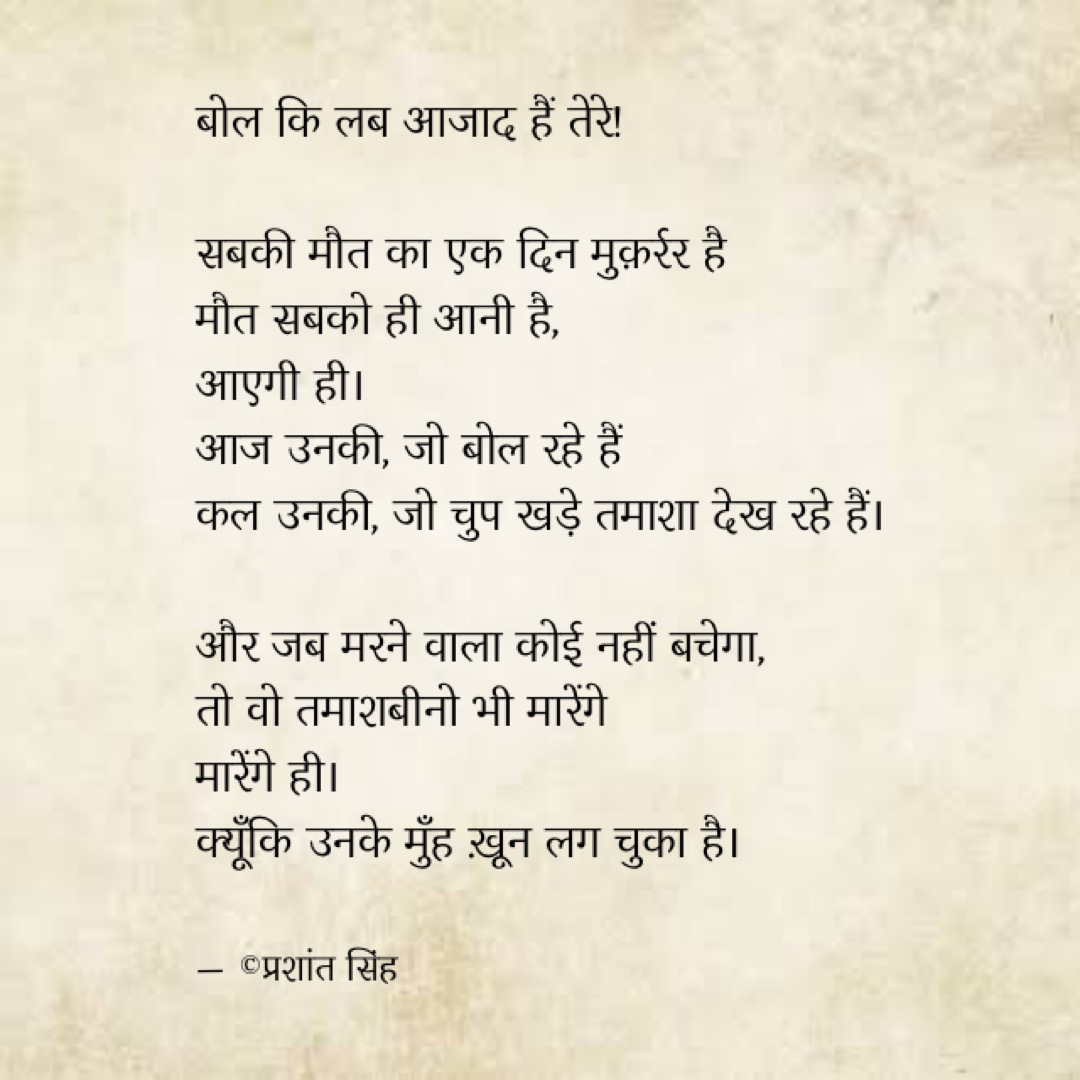 बोल कि लब आजाद हैं तेरे!
सबकी मौत का एक दिन मुक़र्रर है
मौत सबको ही आनी है,
आएगी ही।
आज उनकी, जो बोल रहे हैं
कल उनकी, जो चुप खड़े तमाशा देख रहे हैं।
और जब मरने वाला कोई नहीं बचेगा,
तो वो तमाशबीनो भी मारेंगे
मारेंगे ही।
क्यूँकि उनके मुँह ख़ून लग चुका है।
— ©प्रशांत सिंह